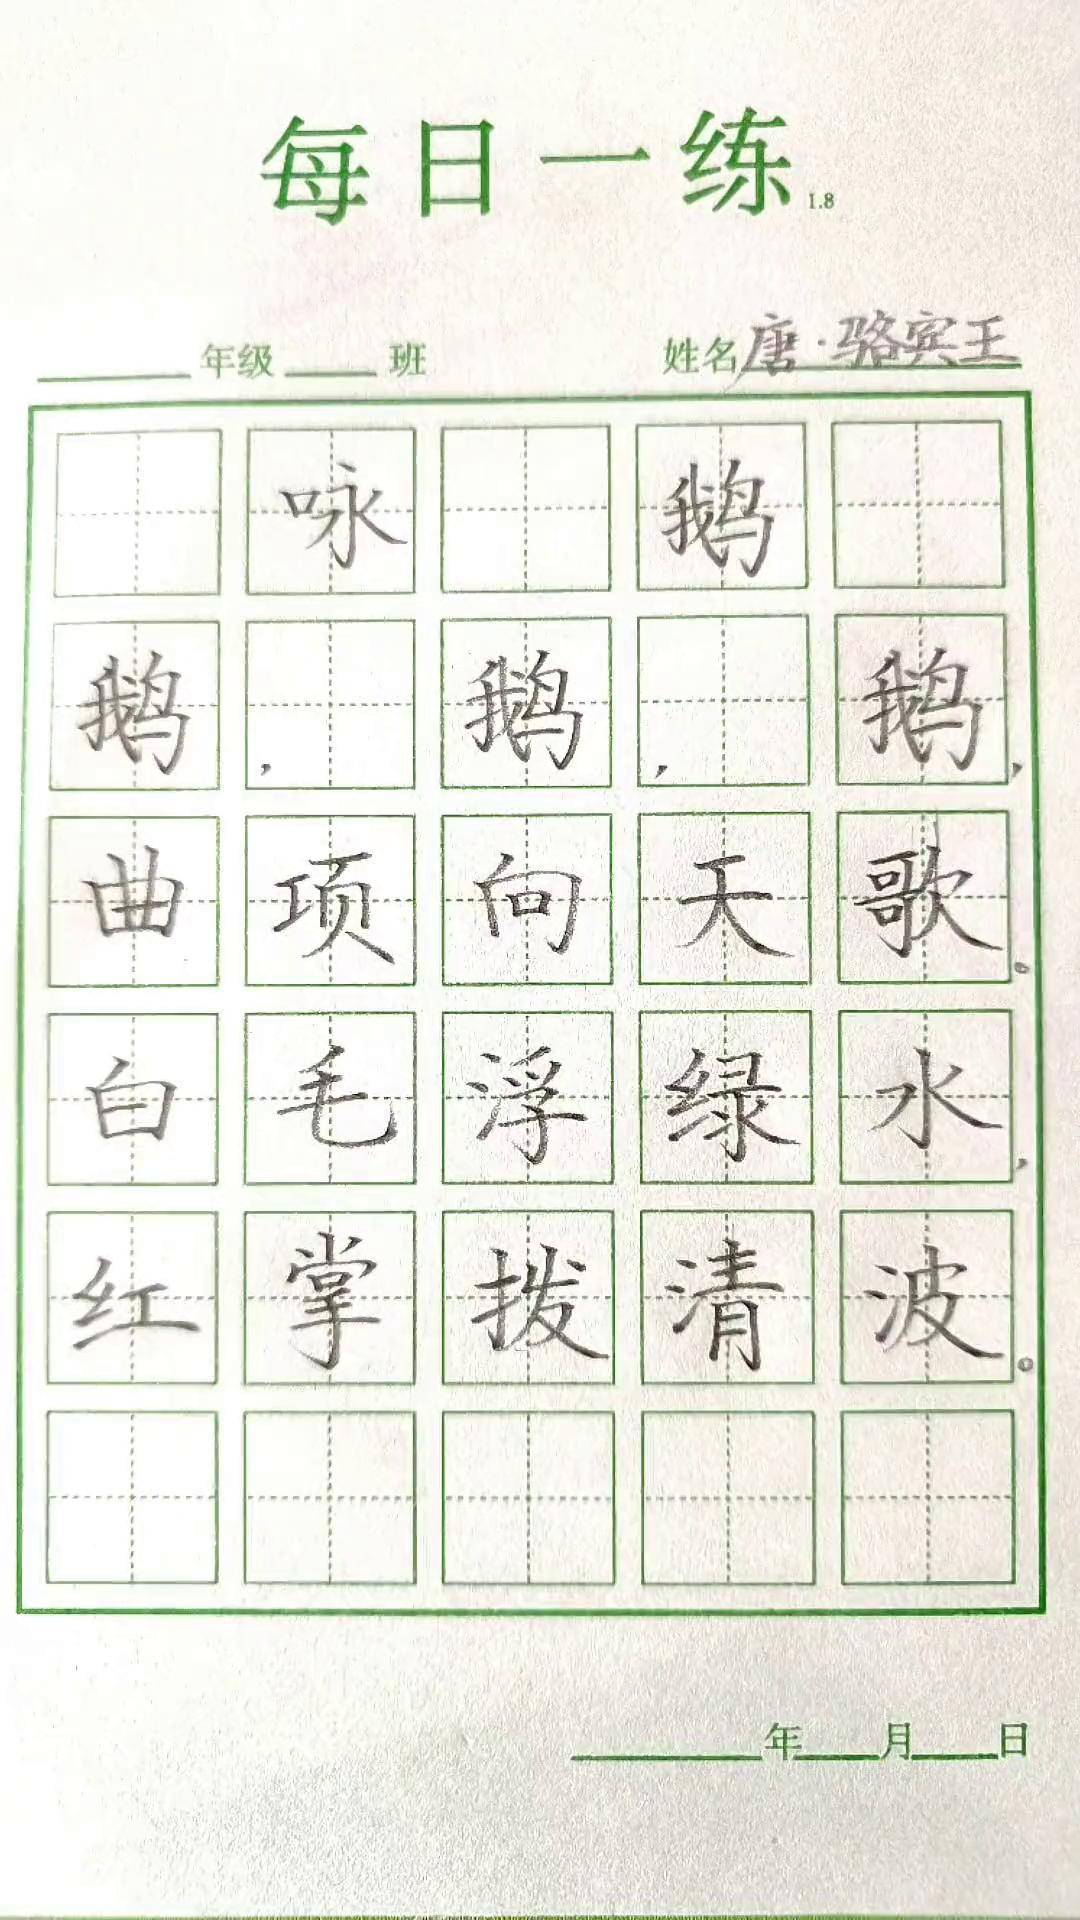 每日一练 1.8
年级 班 姓名 唐·骆宾王
咏鹅
鹅，鹅，鹅，
曲项向天歌。
白毛浮绿水，
红掌拨清波。
年 月 日